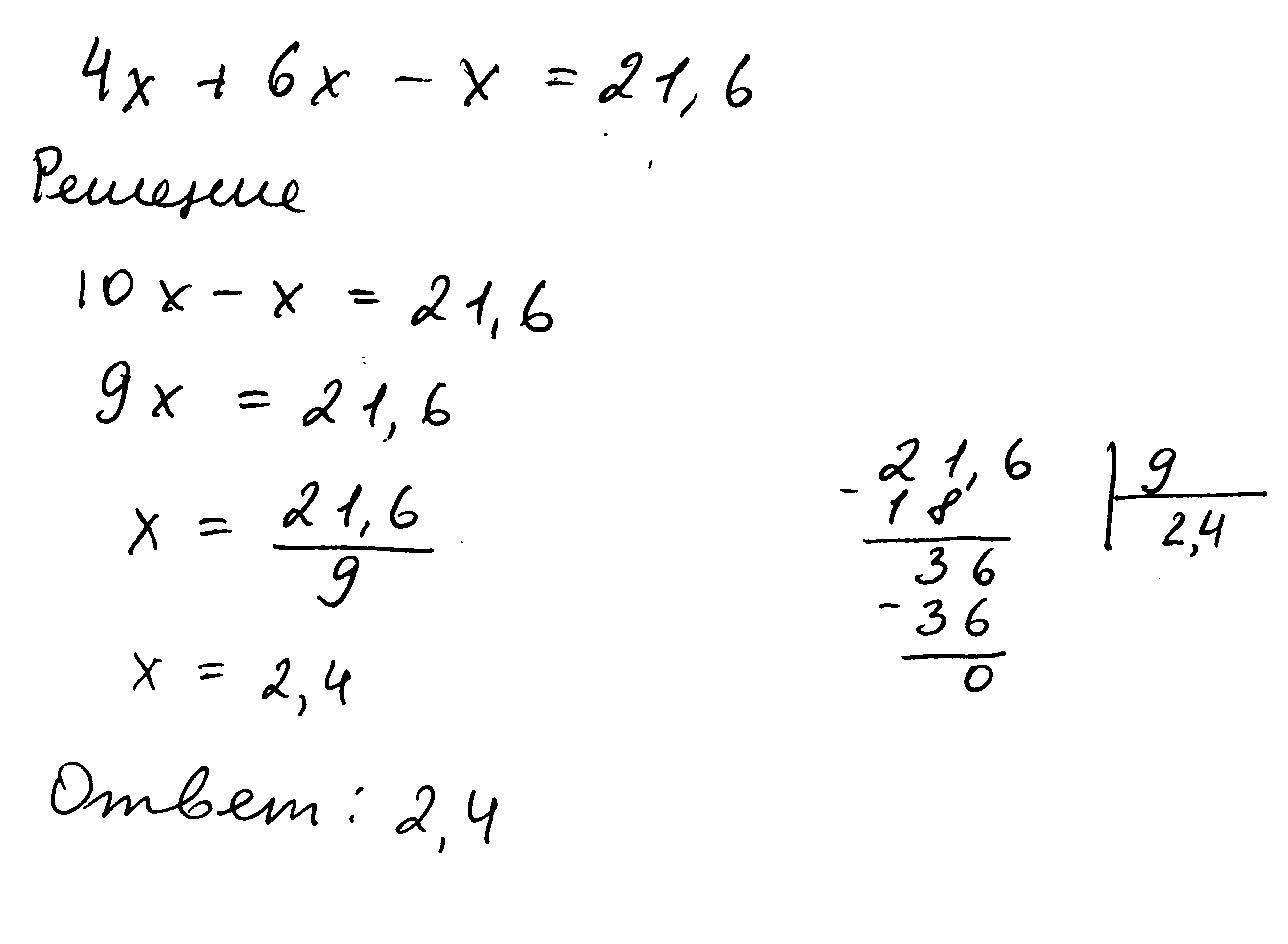 4x + 6x - x = 21,6
Решение
10x - x = 21,6
9x = 21,6
x = 21,6 / 9
x = 2,4
Ответ: 2,4
- 21,6 | 9
18 2,4
36
- 36
0